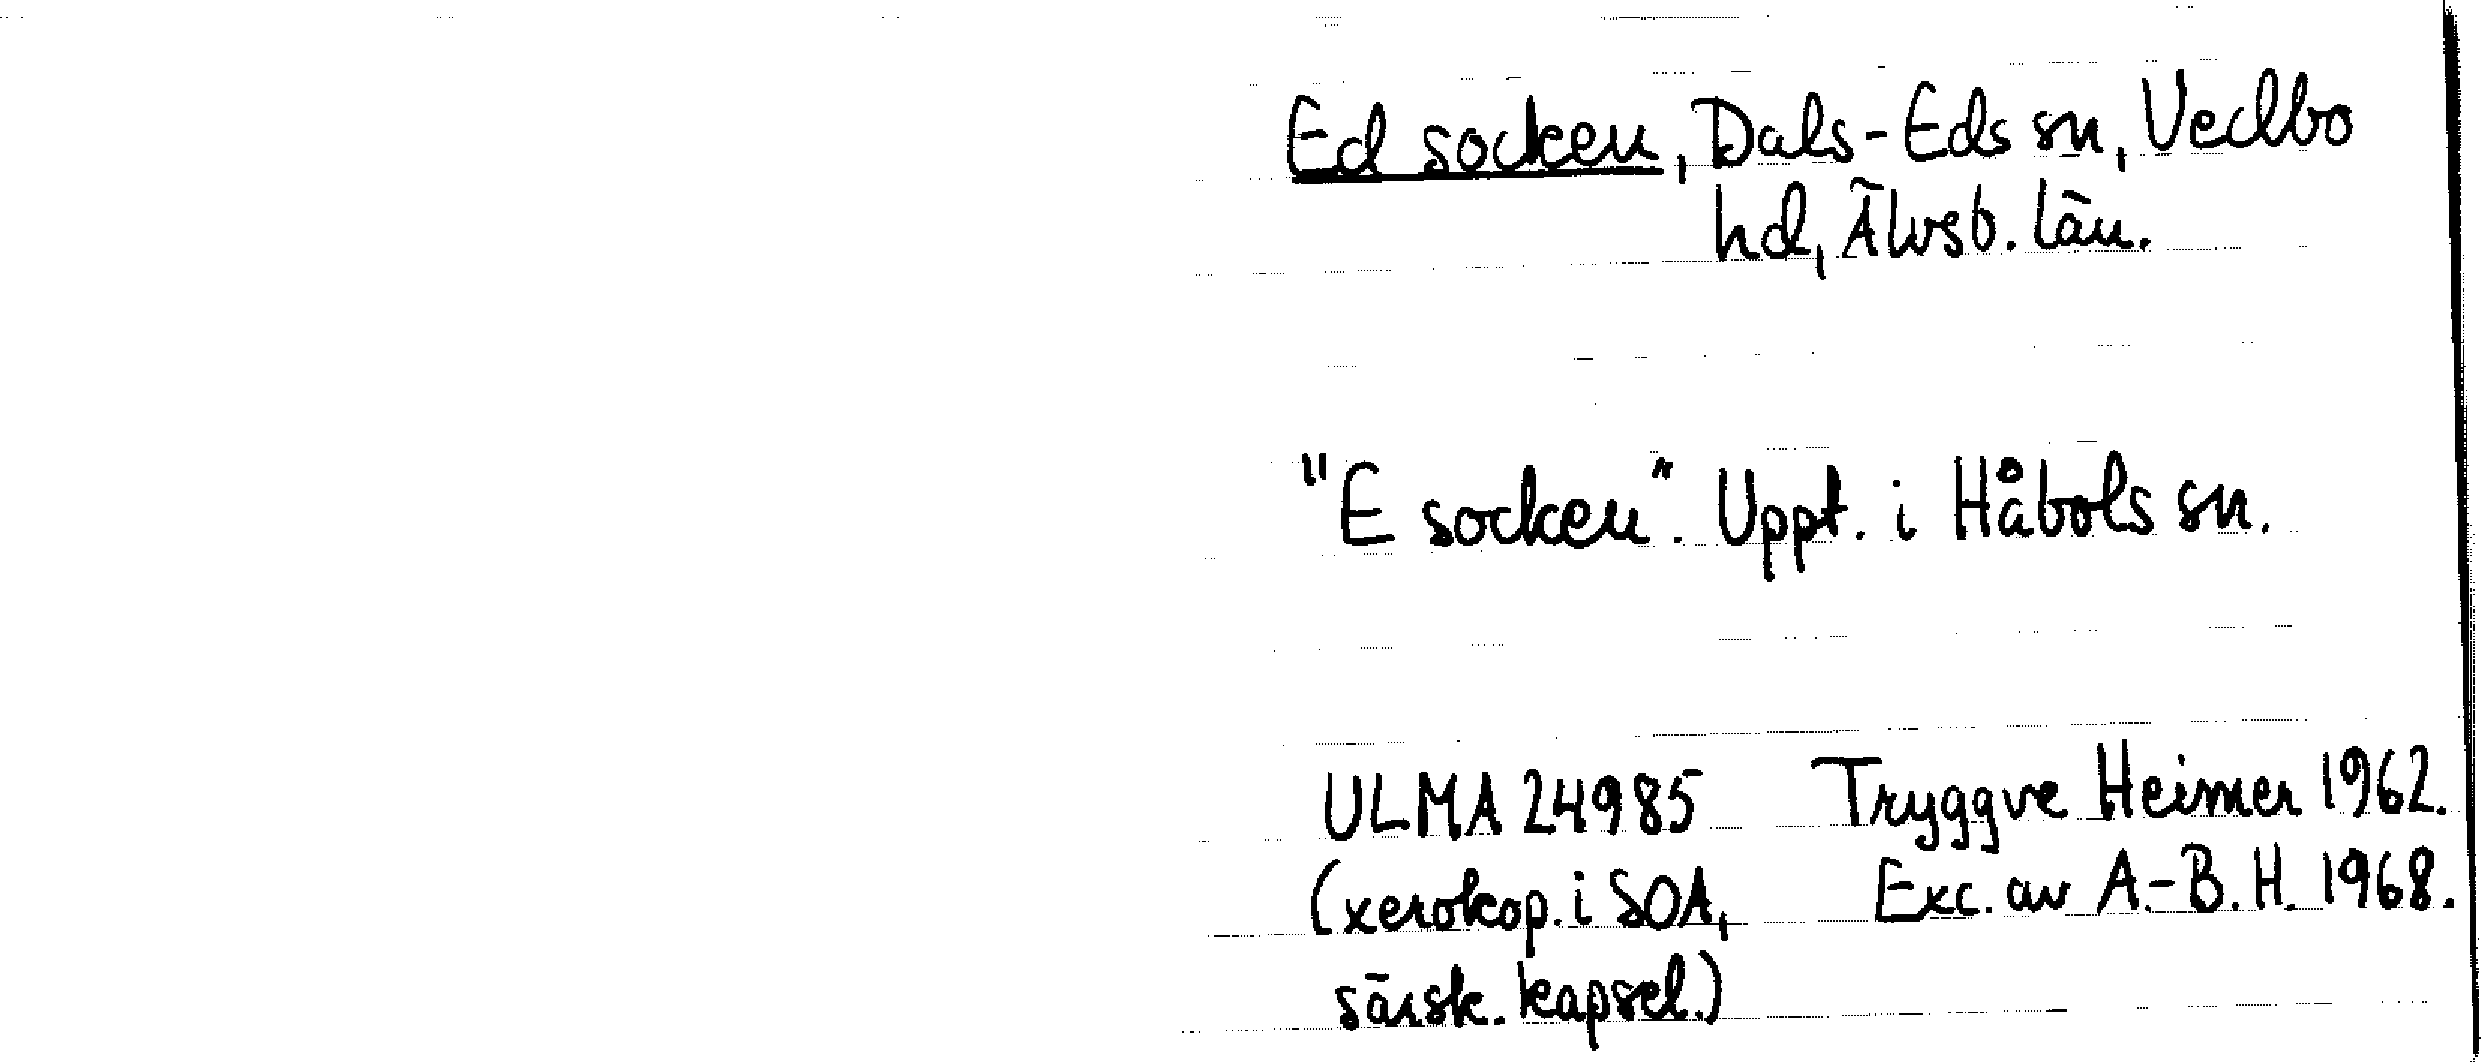 Ed socken, Dals-Eds sn, Vedbo
hd, Älvsb. län.
"E socken". Uppt. i Håbols sn.
ULMA 24985 Tryggve Heimer 1962.
(xerokop. i SOA, Exc. av A.-B. H. 1968.
särsk. kapsel.)